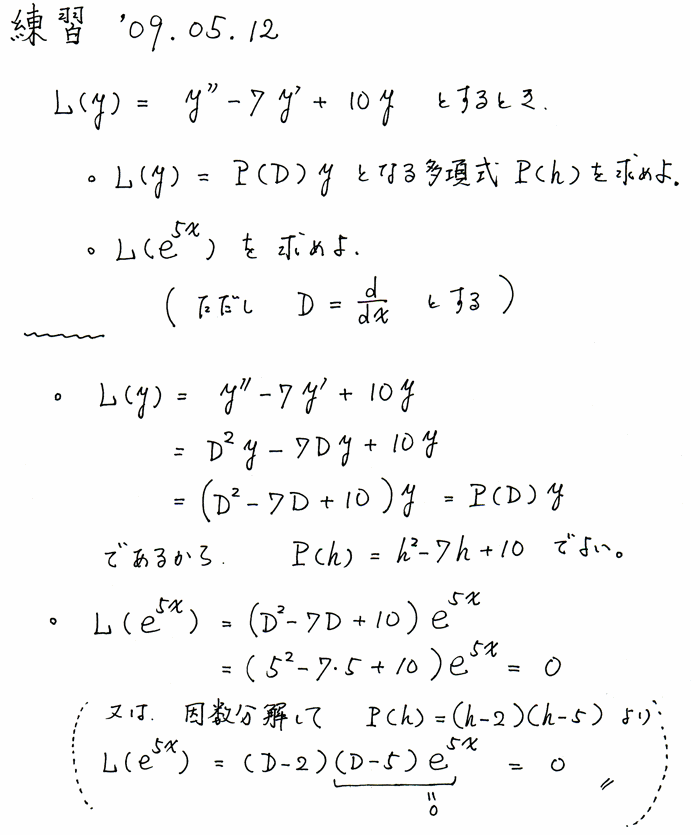 練習 '09.05.12
L(y) = y'' - 7y' + 10y とするとき.
。L(y) = P(D)y となる多項式 P(h) を求めよ.
。L(e^{5x}) を求めよ.
(ただし D = \frac{d}{dx} とする)
。L(y) = y'' - 7y' + 10y
= D²y - 7Dy + 10y
= (D² - 7D + 10)y = P(D)y
であるから. P(h) = h² - 7h + 10 でよい。
。L(e^{5x}) = (D² - 7D + 10) e^{5x}
= (5² - 7・5 + 10) e^{5x} = 0
(又は. 因数分解して P(h) = (h-2)(h-5) より
L(e^{5x}) = (D-2)(D-5) e^{5x} = 0 〃)
‖
0